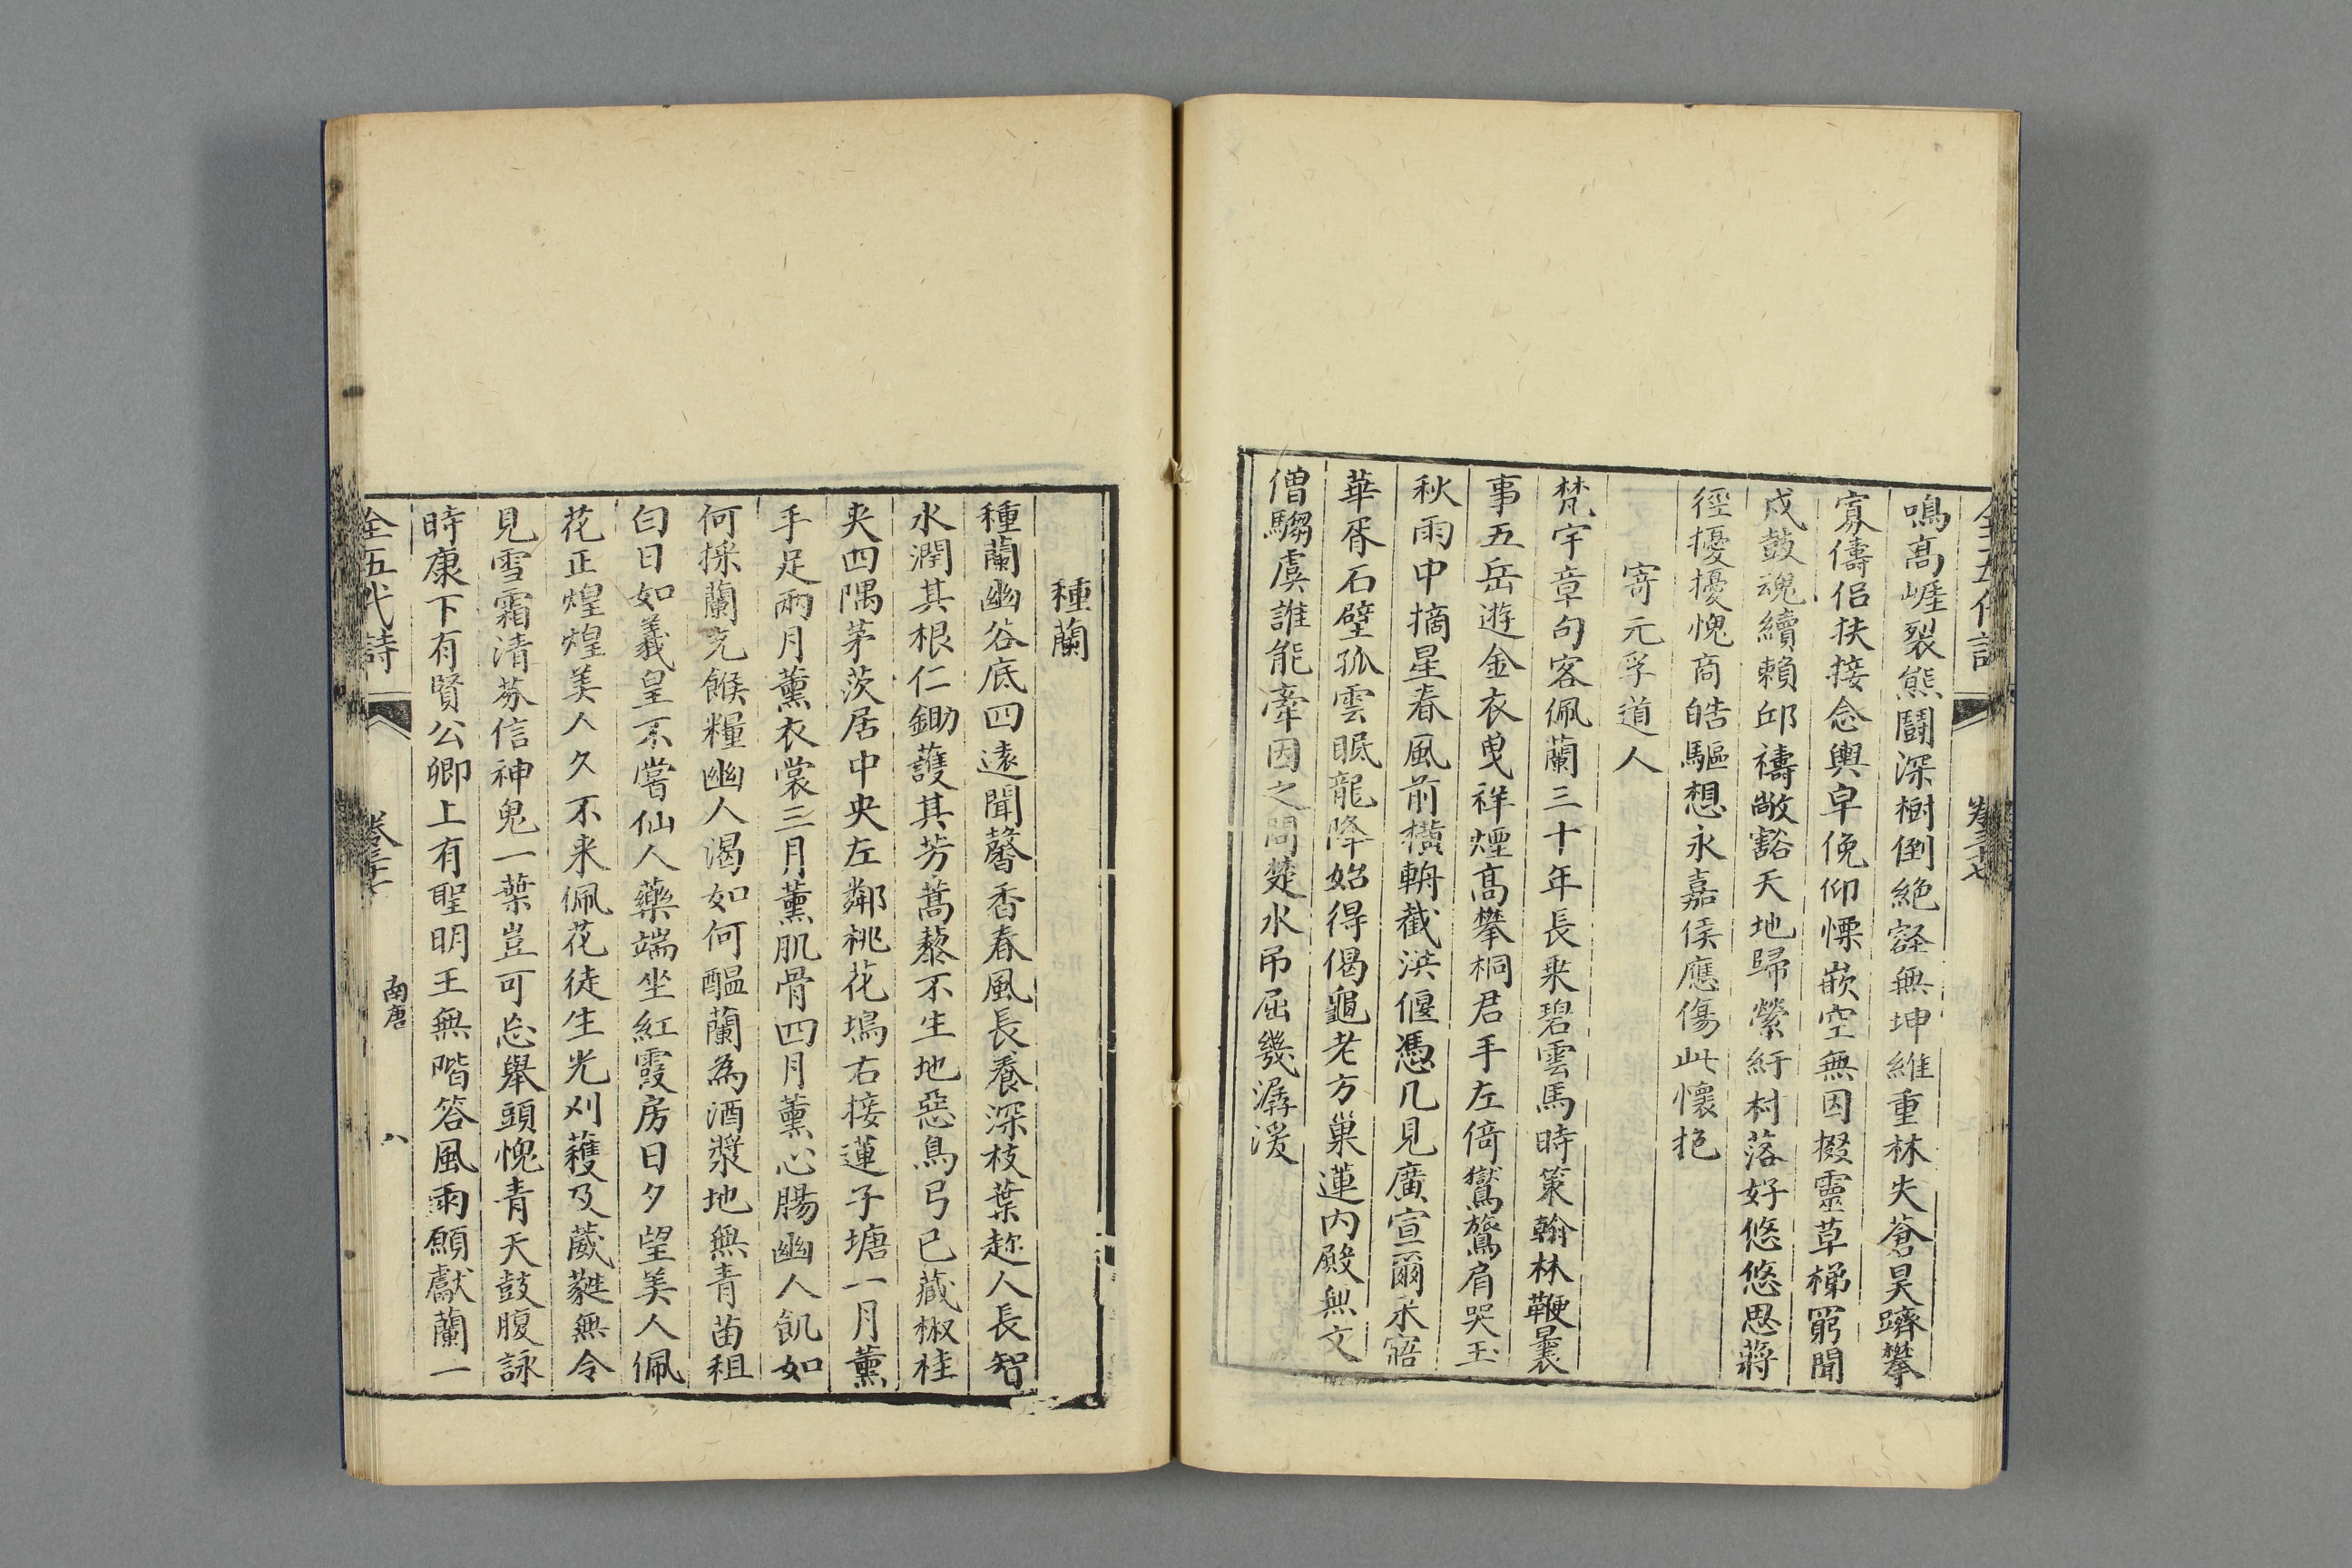 全五代詩
卷三十七
鳴高崕裂熊鬪深樹倒絶壑無坤維重林失蒼昊躋攀
寡儔侶扶接念輿皁俛仰慄嵌空無因掇靈草梯窮聞
戍鼓魂續賴邱禱敞豁天地歸縈紆村落好悠悠思蔣
徑擾擾愧商皓驅想永嘉侯應傷此懷抱
寄元孚道人
梵宇章句客佩蘭三十年長乘碧雲馬時策翰林鞭曩
事五岳遊金衣曳祥煙高攀桐君手左倚鸑鷟肩哭玉
秋雨中摘星春風前横輈截洪偃憑几見廣宣爾來寤
華胥石壁孤雲眠龍降始得偈龜老方巢蓮内殿無文
僧騶虞誰能牽因之問楚水吊屈幾潺湲
種蘭
種蘭幽谷底四遠聞馨香春風長養深枝葉趂人長智
水潤其根仁鋤護其芳蒿藜不生地惡鳥弓已藏椒桂
夾四隅茅茨居中央左鄰桃花塢右接蓮子塘一月薰
手足兩月薰衣裳三月薰肌骨四月薰心腸幽人飢如
何採蘭充餱糧幽人渴如何醖蘭為酒漿地無青苗租
白日如羲皇不嘗仙人藥端坐紅霞房日夕望美人佩
花正煌煌美人久不来佩花徒生光刈穫及葳蕤無令
見雪霜清芬信神鬼一葉豈可忘舉頭愧青天鼓腹詠
時康下有賢公卿上有聖明王無階答風雨願獻蘭一
全五代詩
卷三十七
南唐
八